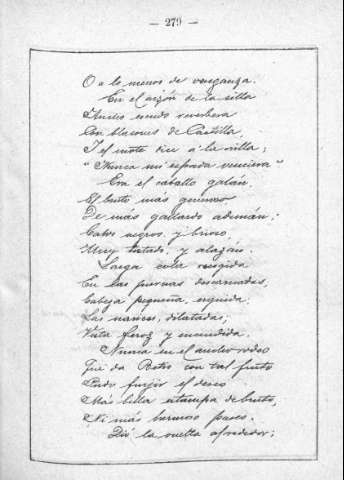 — 279 —
O a lo menos de venganza.
En el arzón de la silla
Ancho escudo reverbera
Con blasones de Castilla,
Y el mote dice a la orilla;
"Nunca mi espada venciera"
Era el caballo galán,
El bruto más generoso,
De más gallardo ademán;
Cabos negros, y brioso,
Muy tostado, y alazán.
Larga cola recogida
En las piernas descarnadas,
Cabeza pequeña, erguida,
Las narices dilatadas,
Vista feroz y encendida.
Nunca en el ancho rodeo
Que da Betis con tal fruto
Pudo fingir el deseo
Más bella estampa de bruto,
Ni más hermoso paseo.
Dió la vuelta alrededor;